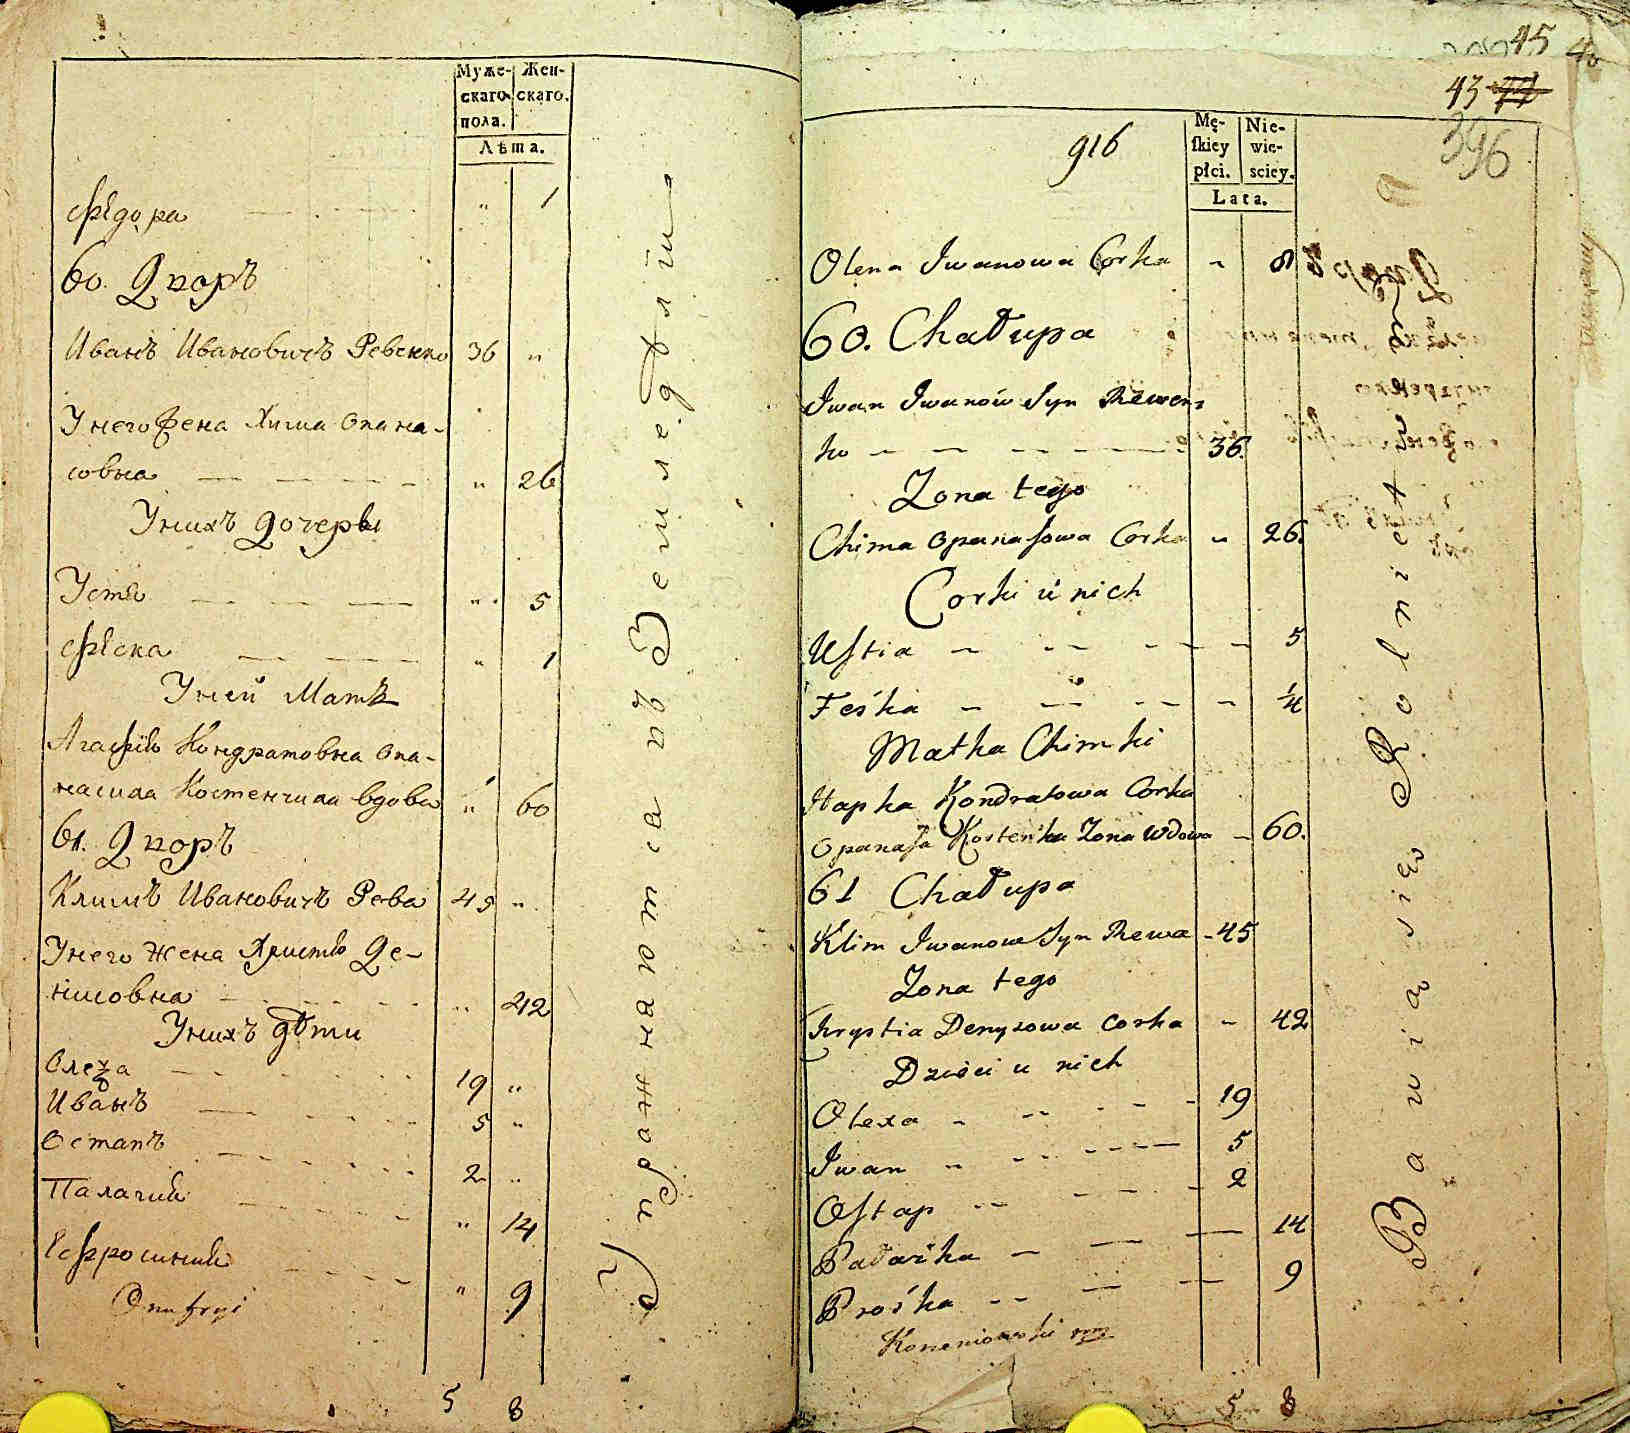 Муже- Жен-
скаго скаго.
пола.
Лѣта.
Ѳѣдора " 1
60. Дворъ
Иванъ Ивановичъ Ревенко 36 "
Унего Жена Хима Опана-
совна " 26
Унихъ Дочеры
Устя " 5
Ѳѣска " 1
Уней Матъ
Агафія Кондратовна Опа-
насиха Костенчиха вдова " 60
61. Дворъ
Климъ Ивановичъ Рева 45 "
Унего Жена Христя Де-
нисовна " 42
Унихъ дѣти
Олеха 19 "
Иванъ 5 "
Остапъ 2 "
Палагия " 14
Ефросиния " 9
Onufryi
5 8
Упражнаются въ Земледѣліи
45
43 44
396
916
Mę- Nie-
skiey wie-
płci. sciey.
Lata.
Olena Iwanowa Corka " 8
60. Chałupa
Iwan Iwanow Syn Rewen:
ko 36.
Zona tego
Chima Opanasowa Corka " 26.
Corki u nich
Ustia 5
Feśka 1/4
Matka Chimki
Hapka Kondratowa Corka
Opanasa Kostenka Zona Wdowa 60.
61 Chałupa
Klim Iwanow Syn Rewa 45
Zona tego
Krystia Denysowa Corka " 42
Dzieci u nich
Olexa 19
Iwan 5
Ostap 2
Pałażka 14
Prośka 9
5 8
Bawią się Rolnict